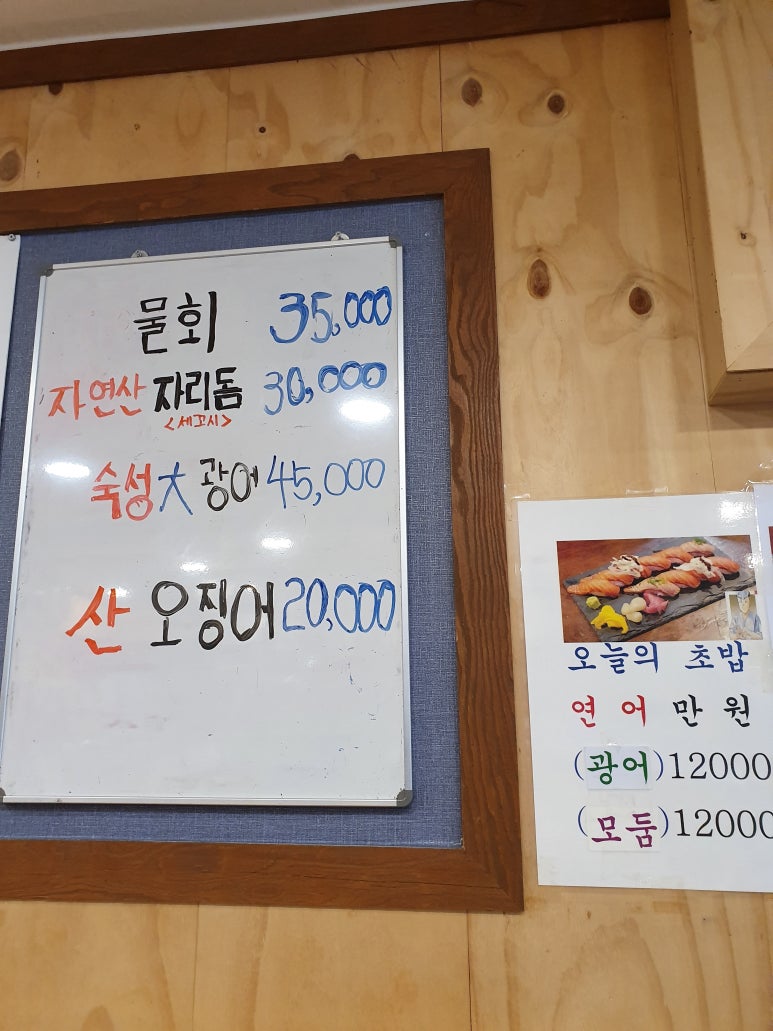 물회 35,000
자연산 자리돔 30,000
<세꼬시>
숙성 大 광어 45,000
산 오징어 20,000
오늘의 초밥
연어 만원
(광어)12000
(모둠)12000